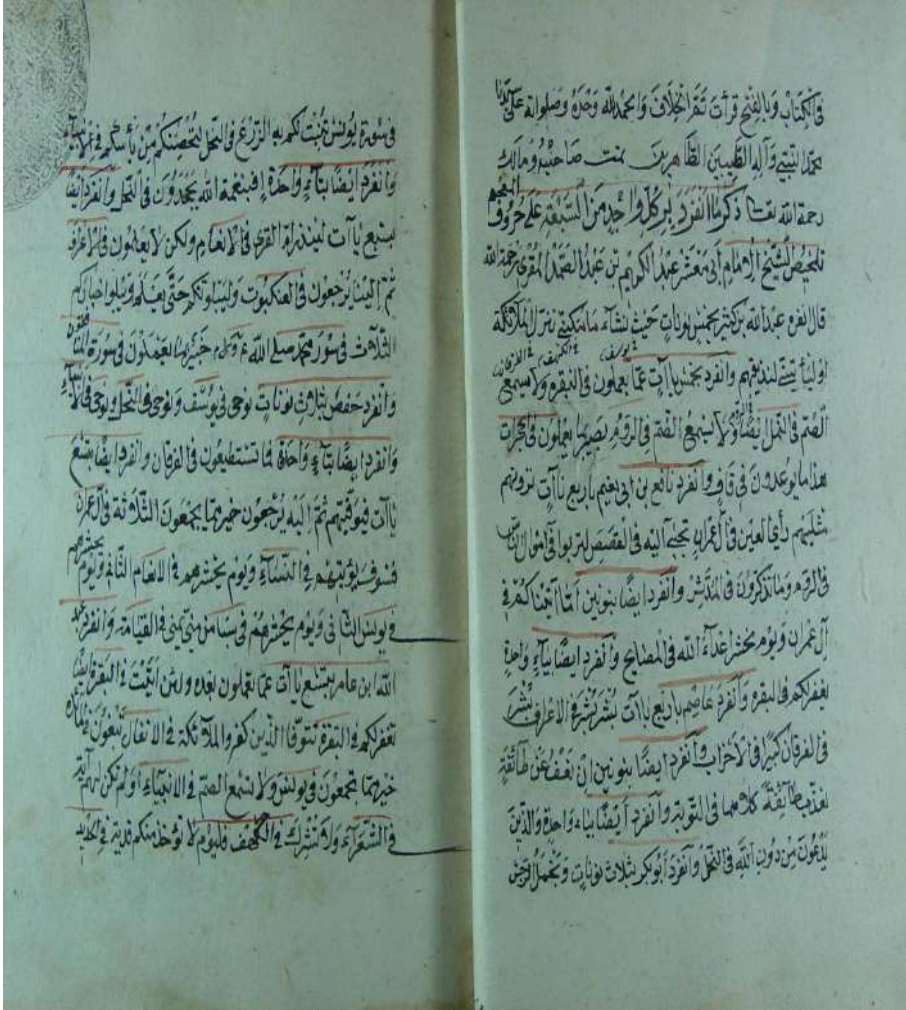 في الكتاب وبالفتح قرأت تم الخلاف والحمد لله وحده وصلواته على سيدنا
محمد النبي وآله الطيبين الطاهرين تمت صاحبه ومالكه
رحمة الله تعالى ذكر ما انفرد به كل واحد من السبعة على حروف المعجم
تلخيص الشيخ الامام أبي معشر عبد الكريم بن عبد الصمد المقرئ رحمة الله
قال انفرد عبد الله بن كثير بخمس نونات حيث نشاء ما مكنني ننزل الملائكة
اوليأتينني لنذيقهم وانفرد بخمس ياآت عما يعملون في البقره ولا يسمع
الصم في النمل ايضا ولا يسمع الصم في الروم بصير بما يعملون في الحجرات
هذا ما يوعدون في قاف وانفرد نافع بن ابي نعيم باربع تاآت ترونهم
مثليهم رأي العين في آل عمران تجبى اليه في القصص لتربوا في اموال الناس
في الروم وما تذكرون في المدثر وانفرد ايضا بنونين اتا آتيناكم في
آل عمران ويوم نحشر اعداء الله في المصابيح وانفرد ايضا بياء واحدة
يغفر لكم في البقره وانفرد عاصم باربع باآت بشر بشر في الاعراف بشرا
في الفرقان كبيرا في الاحزاب وانفرد ايضا بنونين ان نعف عن طائفة
نعذب طائفة كلاهما في التوبة وانفرد ايضا بياء واحدة والذين
يدعون من دون الله في النحل وانفرد أبو بكر بثلاث نونات ونجعل الرجس
في سورة يونس ننبت لكم به الزرع في النحل لنحصنكم من بأسكم في الانبياء
وانفرد ايضا بتاء واحدة افبنعمة الله تجحدون في النحل وانفرد ايضا
بسبع ياآت لينذر ام القرى في الانعام ولكن لا يعلمون في الاعراف
ثم الينا يرجعون في العنكبوت وليبلونكم حتى يعلم ويبلوا اخباركم
الثلاث في سورة محمد صلى الله عليه وسلم خبير بما يعملون في سورة المنافقون
وانفرد حفص بثلاث نونات نوحي في يوسف ونوحي في النحل ونوحي في الانبياء
وانفرد ايضا بتاء واحدة فما تستطيعون في الفرقان وانفرد ايضا بتسع
ياآت فيوفيهم ثم اليه يرجعون خير مما يجمعون الثلاثة في آل عمران
فسوف يؤتيهم في النساء ويوم يحشرهم في الانعام الثاني ويوم يحشرهم
في يونس الثاني ويوم يحشرهم في سبا من مني يمنى في القيامة وانفرد عبد
الله ابن عامر بتسع تاآت عما تعملون بعده ولئن اتيت في البقرة ايضا
تغفر لكم في البقرة تتوفا الذين كفروا الملائكة في الانفال تبغون في المائدة
خير مما تجمعون في يونس ولا تسمع الصم في الانبياء اولم تكن لهم آية
في الشعراء ولا تشرك في الكهف فاليوم لا تؤخذ منكم فدية في الحديد